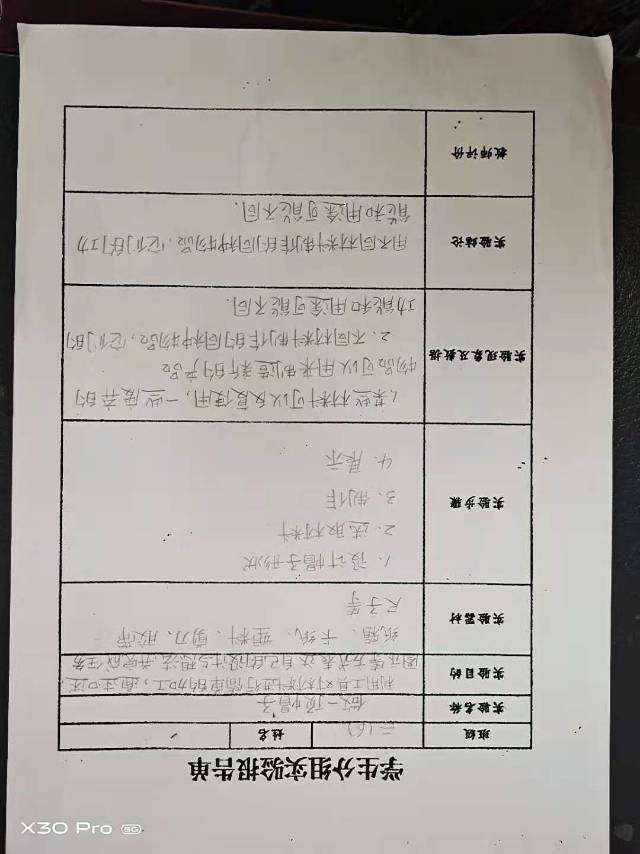 学生分组实验报告单
班级 二(6) 姓名
实验名称 做一顶帽子
实验目的 利用工具对材料进行简单的加工；通过口述、
图示等方式表达自己的设计与想法，并完成任务
实验器材 纸箱、卡纸、塑料、剪刀、胶带
尺子等
实验步骤 1. 设计帽子形状
2. 选取材料
3. 制作
4. 展示
实验现象及数据 1. 某些材料可以反复使用，一些废弃的
物品可以用来制造新的产品
2. 不同材料制作的同种物品，它们的
功能和用途可能不同.
实验结论 用不同材料制作的同种物品，它们的功
能和用途可能不同.
教师评价
X30 Pro 5G